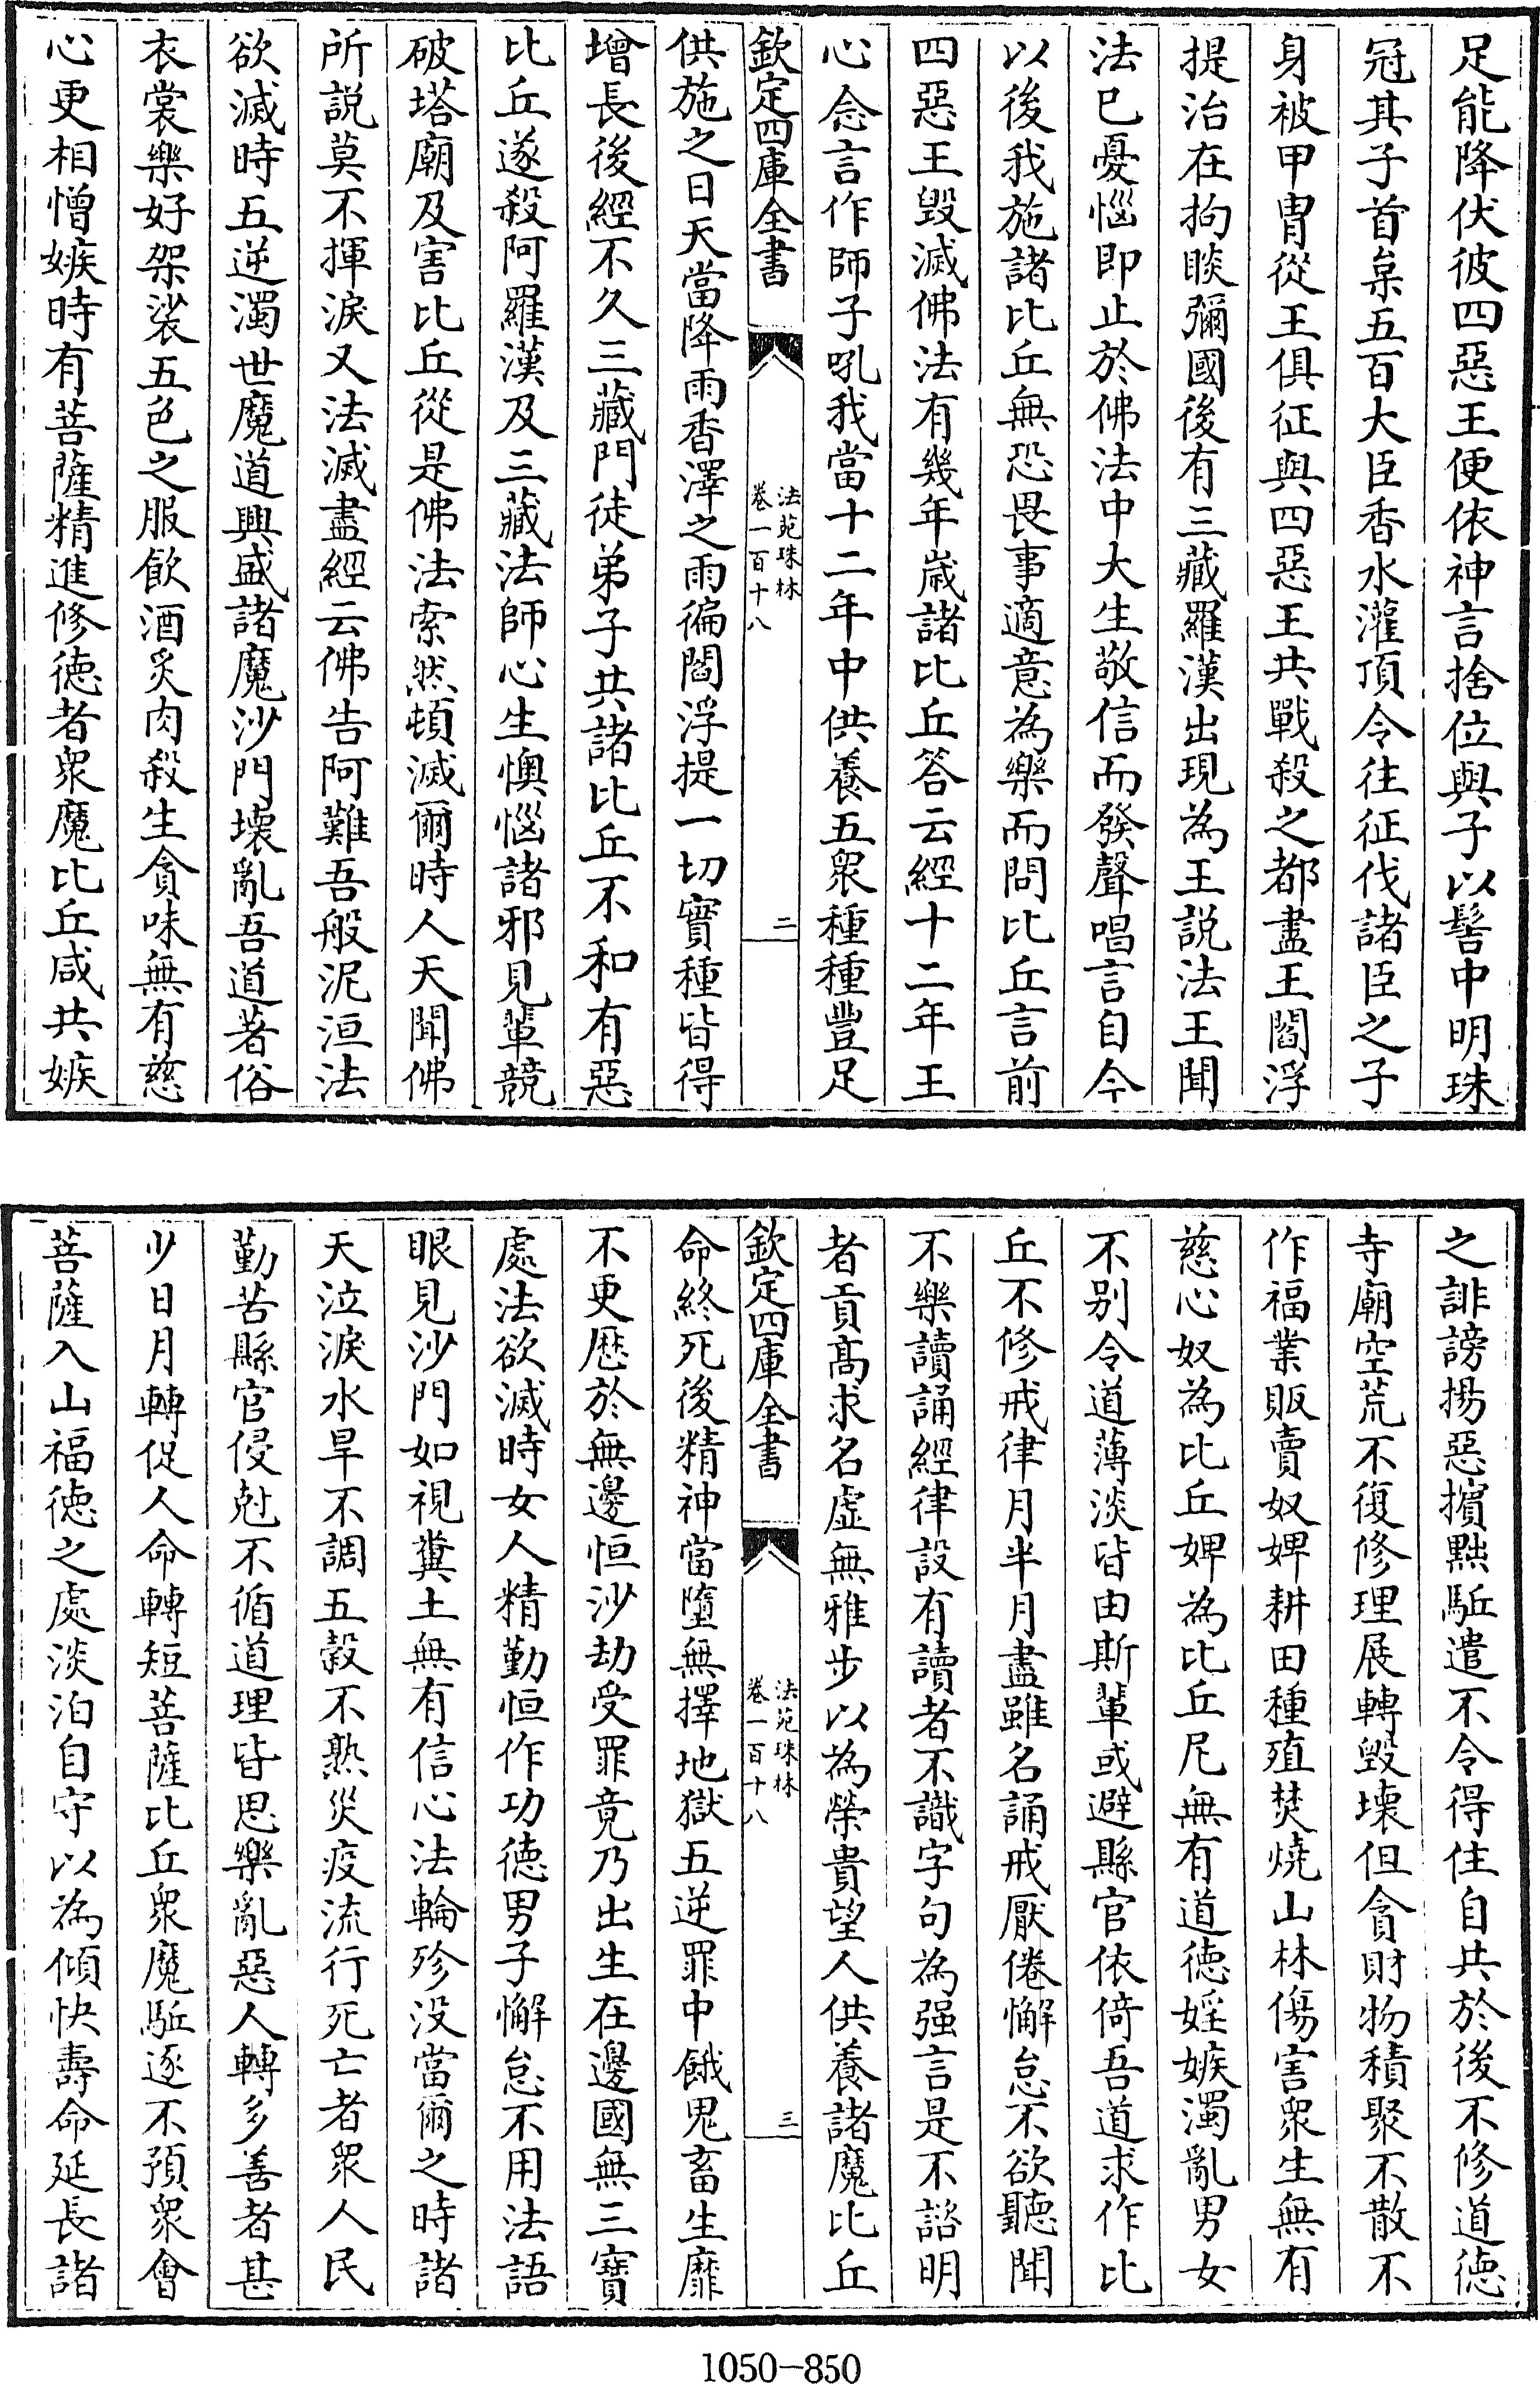 足能降伏彼四惡王便依神言捨位與子以髻中明珠
冠其子首㭒五百大臣香水灌頂令往征伐諸臣之子
身被甲冑從王俱征與四惡王共戰殺之都盡王閻浮
提治在拘睒彌國後有三藏羅漢出現為王説法王聞
法已憂惱即止於佛法中大生敬信而發聲唱言自今
以後我施諸比丘無恐畏事適意為樂而問比丘言前
四惡王毀滅佛法有幾年歲諸比丘答云經十二年王
心念言作師子吼我當十二年中供養五衆種種豐足
欽定四庫全書
法苑珠林
卷一百十八
二
供施之日天當降雨香澤之雨徧閻浮提一切實種皆得
增長後經不久三藏門徒弟子共諸比丘不和有惡
比丘遂殺阿羅漢及三藏法師心生懊惱諸邪見輩競
破塔廟及害比丘從是佛法索然頓滅爾時人天聞佛
所説莫不揮淚又法滅盡經云佛告阿難吾般泥洹法
欲滅時五逆濁世魔道興盛諸魔沙門壞亂吾道著俗
衣裳樂好袈裟五色之服飲酒炙肉殺生貪味無有慈
心更相憎嫉時有菩薩精進修徳者衆魔比丘咸共嫉
之誹謗揚惡擯黜駈遣不令得住自共於後不修道徳
寺廟空荒不復修理展轉毀壞但貪財物積聚不散不
作福業販賣奴婢耕田種殖焚燒山林傷害衆生無有
慈心奴為比丘婢為比丘尼無有道徳婬嫉濁亂男女
不别令道薄淡皆由斯輩或避縣官依倚吾道求作比
丘不修戒律月半月盡雖名誦戒厭倦懈怠不欲聽聞
不樂讀誦經律設有讀者不識字句為强言是不諮明
者貢髙求名虚無雅步以為榮貴望人供養諸魔比丘
欽定四庫全書
法苑珠林
卷一百十八
三
命終死後精神當墮無擇地獄五逆罪中餓鬼畜生靡
不更歴於無邊恒沙劫受罪竟乃出生在邊國無三寳
處法欲滅時女人精勤恒作功徳男子懈怠不用法語
眼見沙門如視糞土無有信心法輪殄没當爾之時諸
天泣淚水旱不調五穀不熟災疫流行死亡者衆人民
勤苦縣官侵尅不循道理皆思樂亂惡人轉多善者甚
少日月轉促人命轉短菩薩比丘衆魔駈逐不預衆會
菩薩入山福徳之處淡泊自守以為傾快壽命延長諸
1050-850